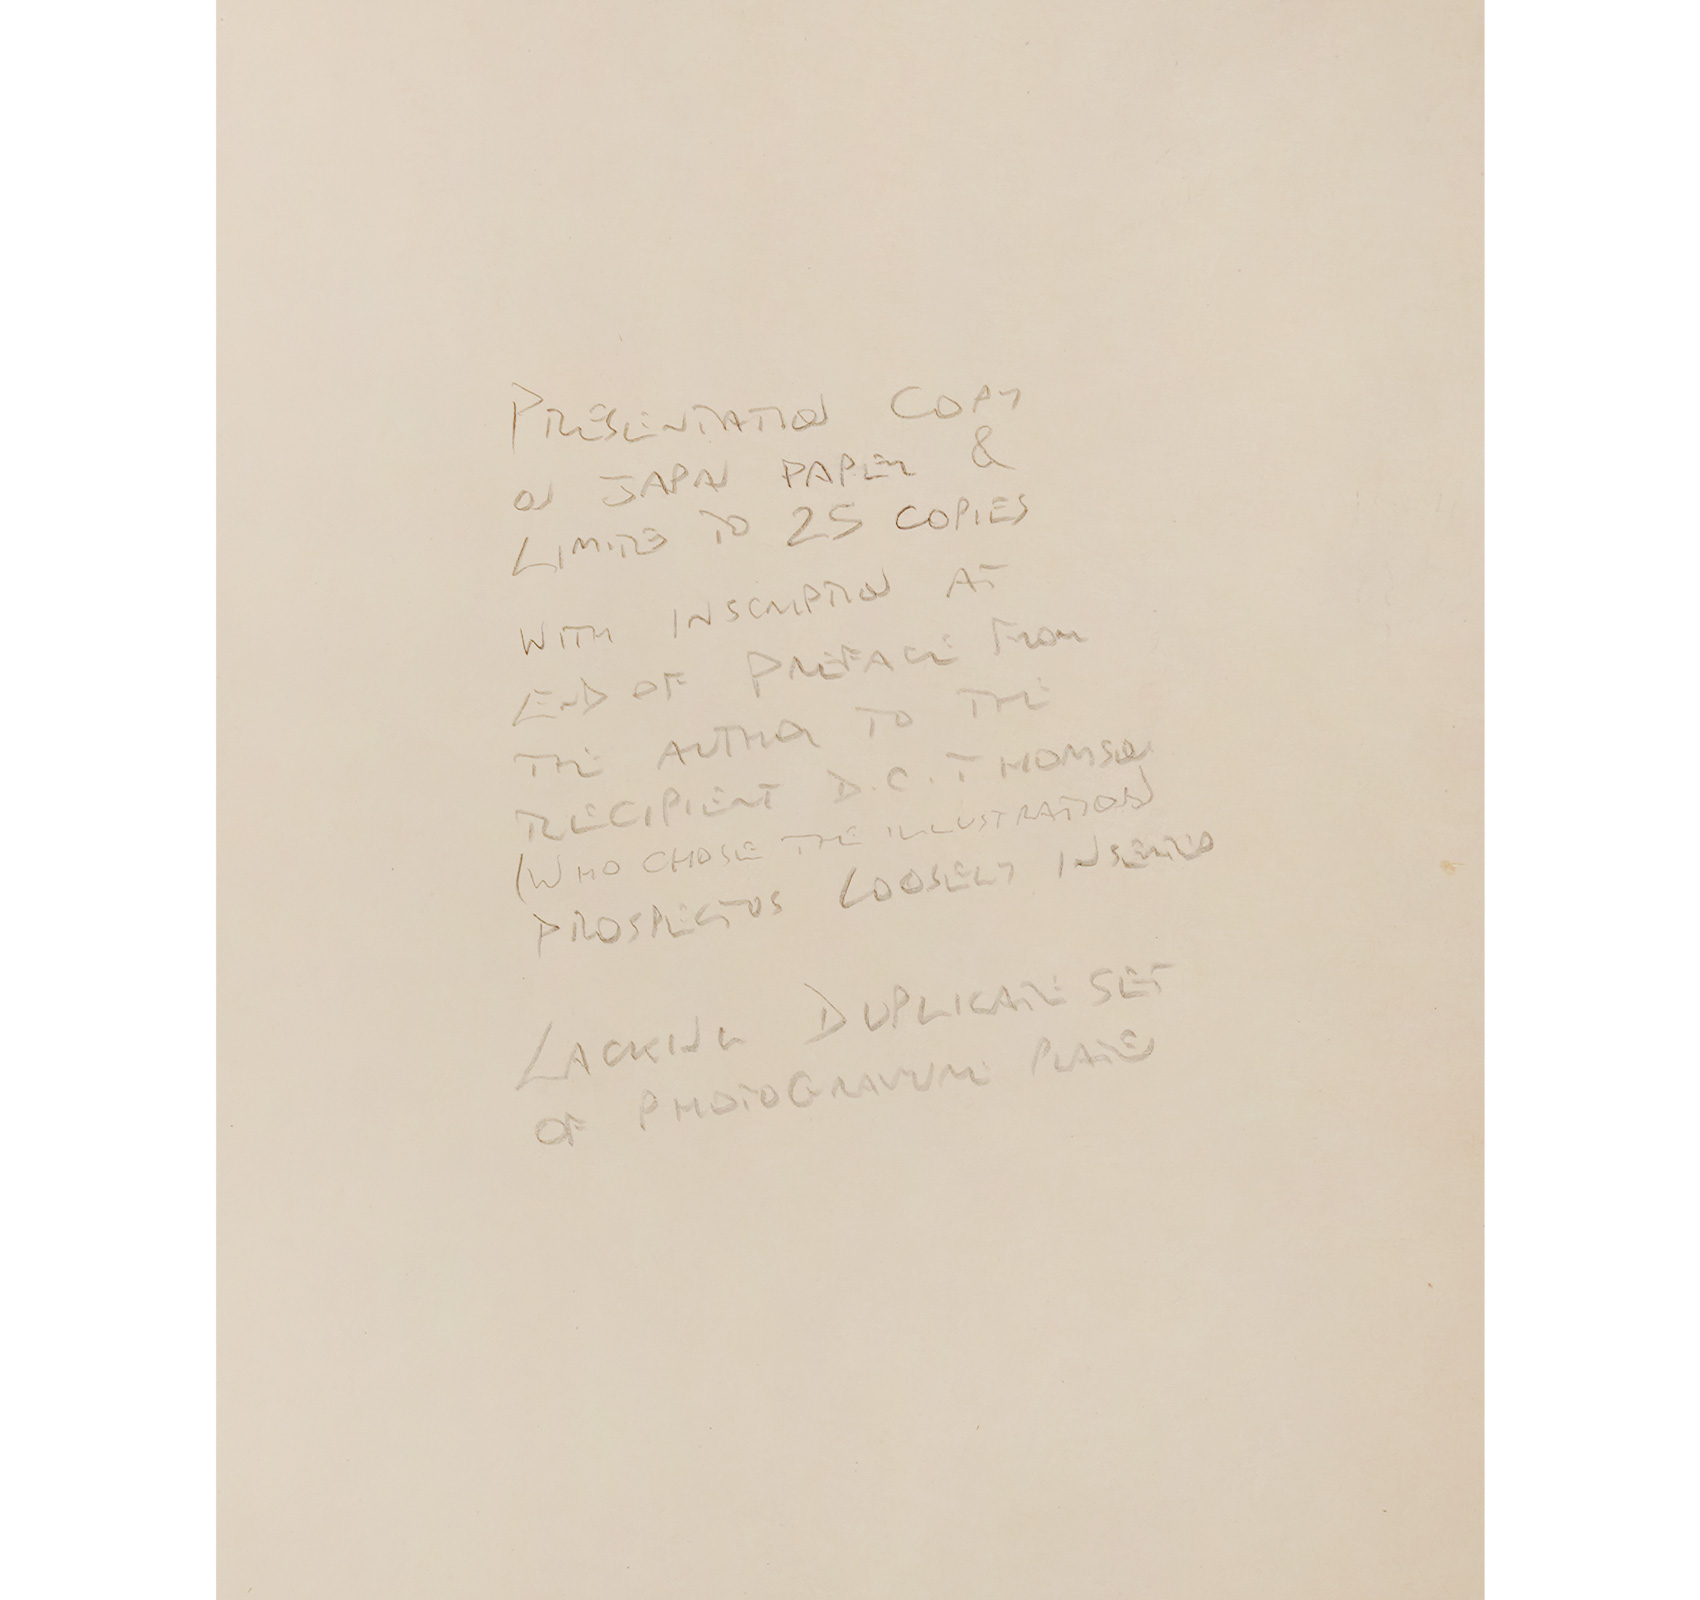 PRESENTATION COPY
ON JAPAN PAPER &
LIMITED TO 25 COPIES
WITH INSCRIPTION AT
END OF PREFACE FROM
THE AUTHOR TO THE
RECIPIENT D.C. THOMSON
(WHO CHOSE THE ILLUSTRATIONS)
PROSPECTUS LOOSELY INSERTED
LACKING DUPLICATE SET
OF PHOTOGRAVURE PLATES